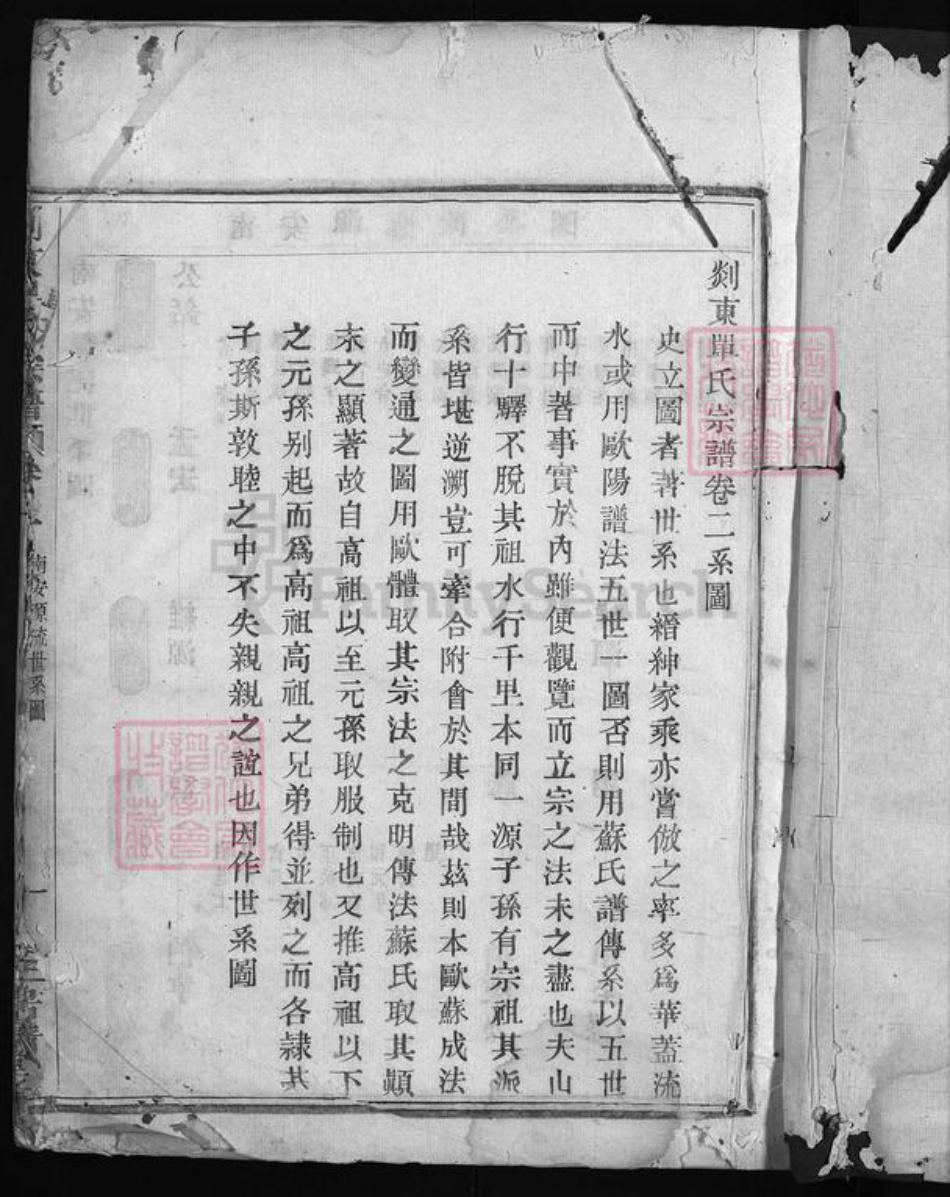 剡東單氏宗譜卷二系圖
史立圖者著世系也縉紳家乘亦嘗倣之率多爲華蓋流
水或用歐陽譜法五世一圖否則用蘇氏譜傳系以五世
而中著事實於內雖便觀覽而立宗之法未之盡也夫山
行十驛不脫其祖水行千里本同一源子孫有宗祖其派
系皆堪逆溯豈可牽合附會於其間哉茲則本歐蘇成法
而變通之圖用歐體取其宗法之克明傳法蘇氏取其顛
末之顯著故自高祖以至元孫取服制也又推高祖以下
之元孫别起而爲高祖高祖之兄弟得並列之而各隸其
子孫斯敦睦之中不失親親之誼也因作世系圖
南安源流世系圖
一
FamilySearch